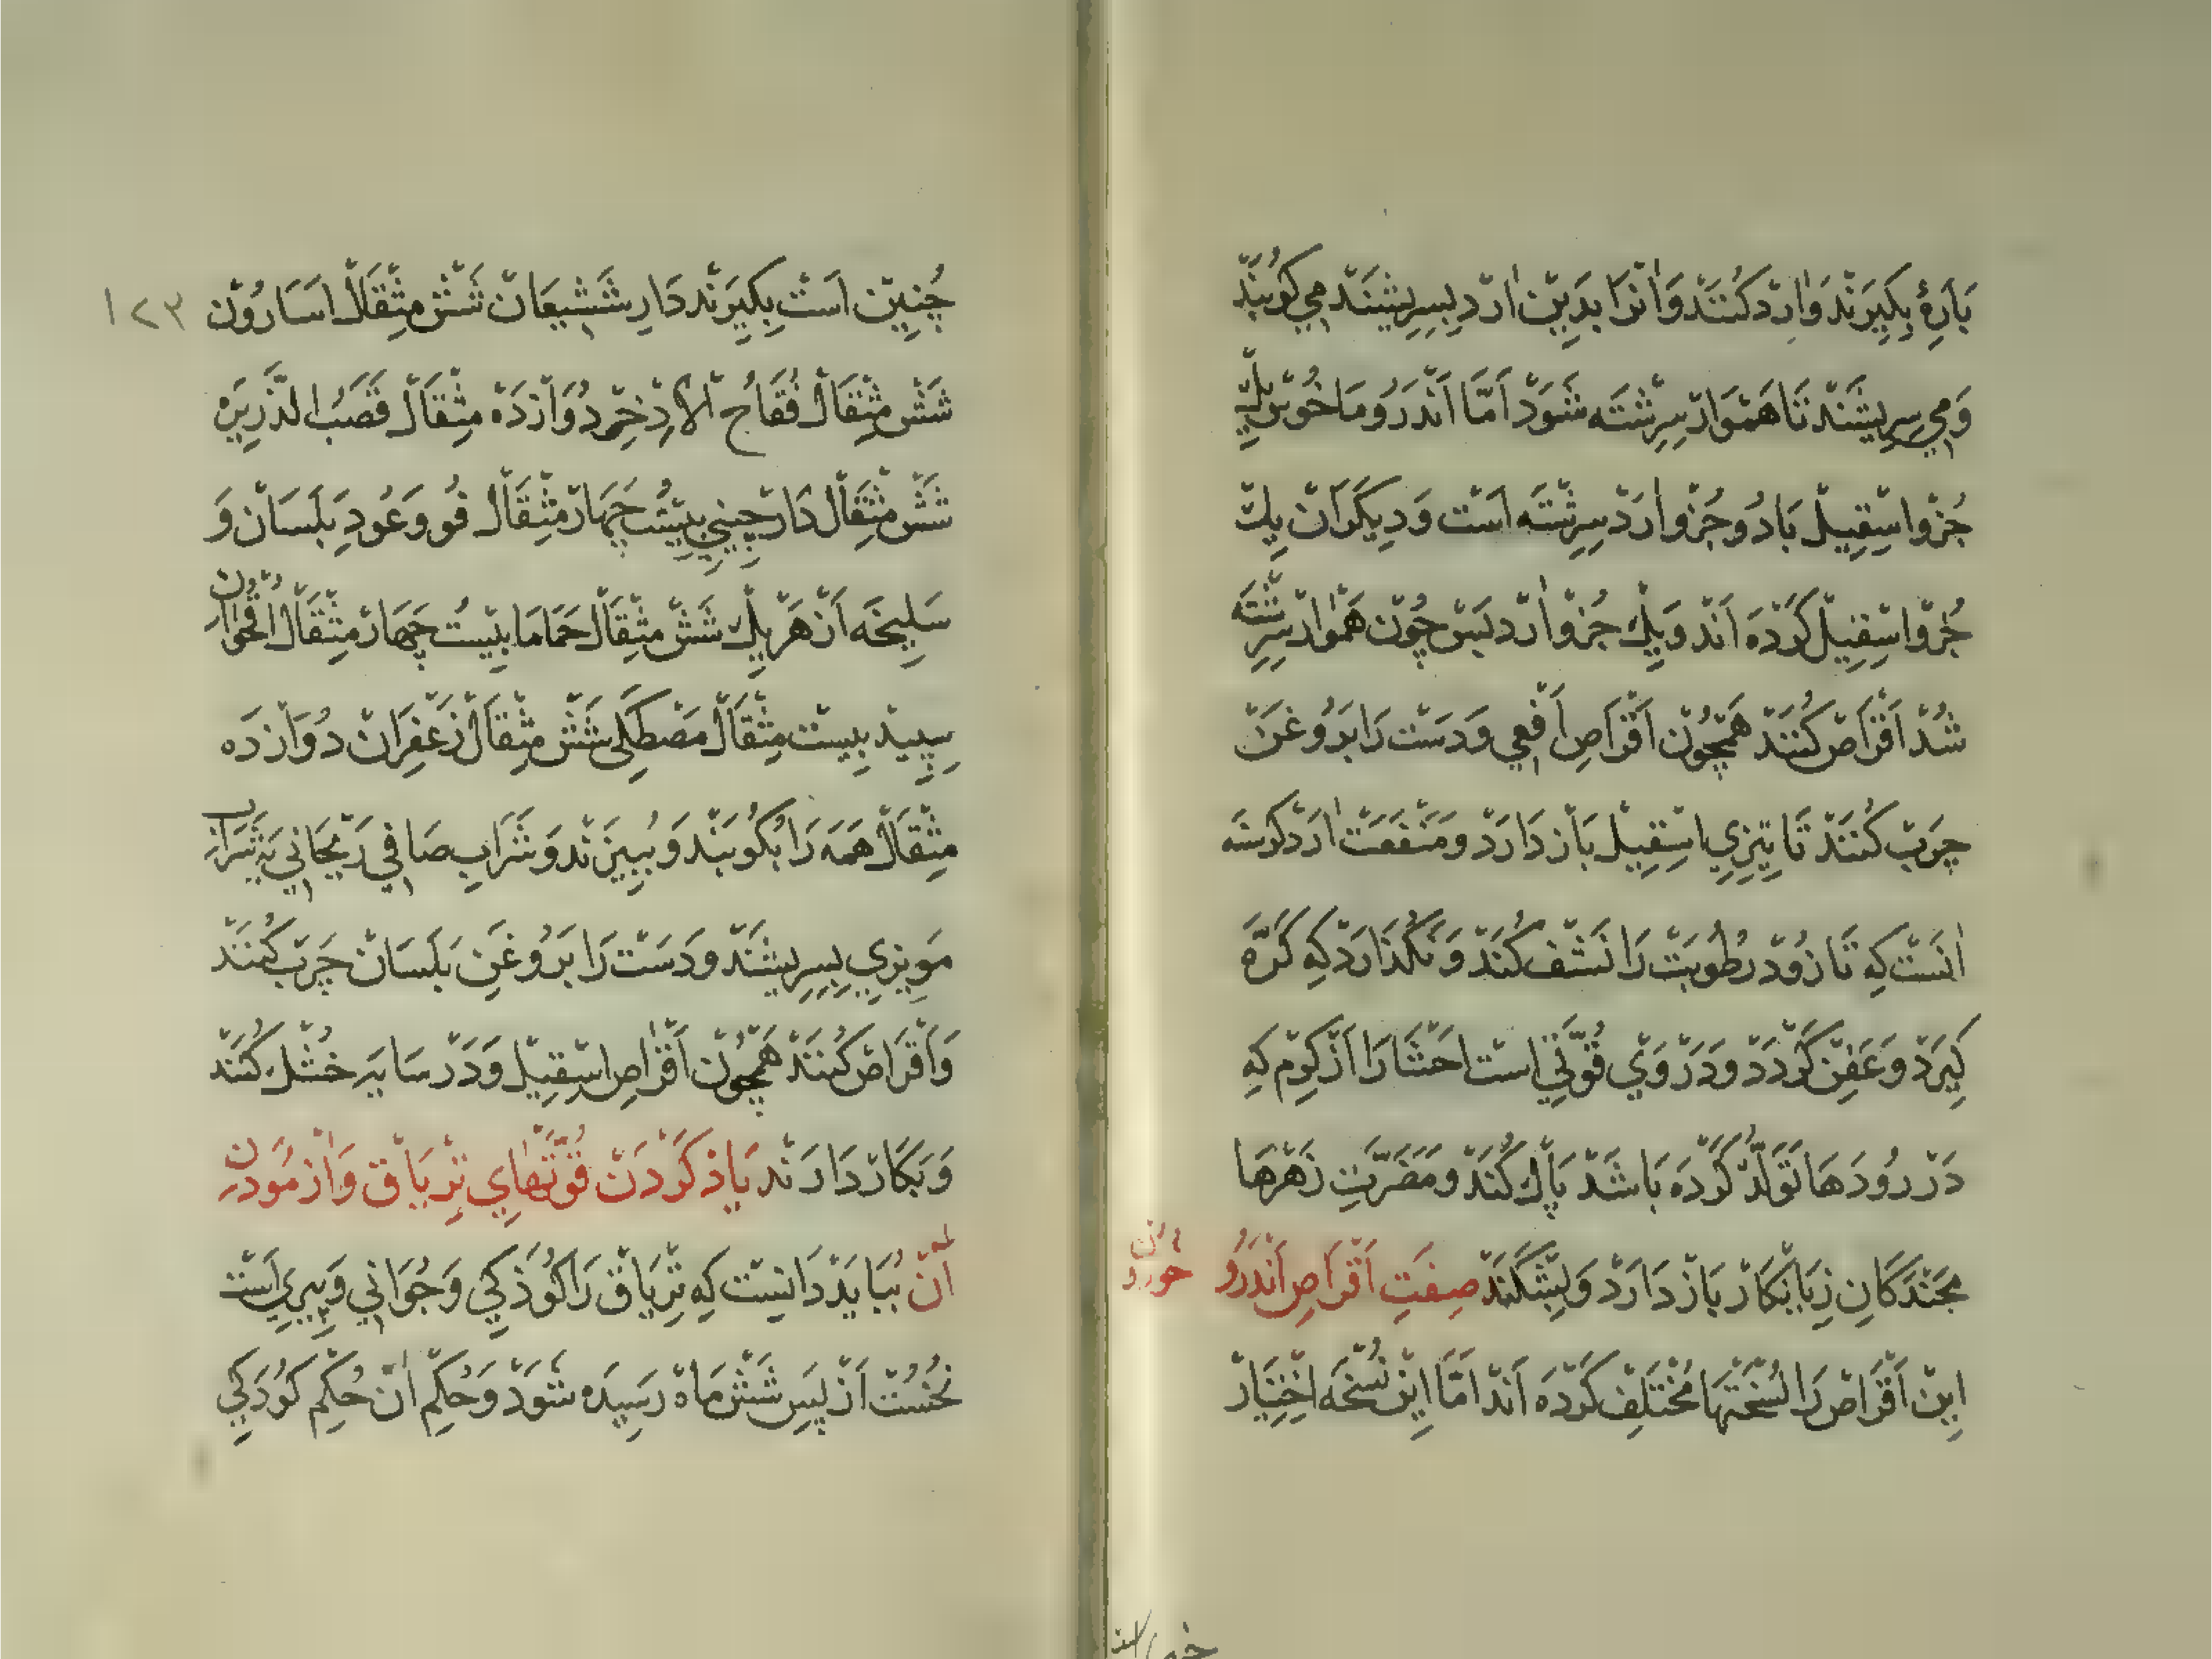 پَارَۀِ بِكِيرَنْد وَاَرْد كُنَنْد وَانْرَا بَدِيْن ارْد بِسِرِيشَنَد مِي كُوبَنْد
وَمِي سِرِيشَنْد تَا هَمْوَارْ سِرِشْتَه شَوَدْ اَمَّا اَنْدَرُومَاخُوْس يِكْ
جُزْو اسْقِيلْ بَا دُو جُزْو ارَدْ سِرِشْتَه اسْت وَدِيكَرَانْ يِكْ
جُزْو اسْقِيلْ كَرْدَه اَنْد وَيِكْ جُزْو ارْد پَسْ چُوْن هَمْوَارْ سِرِشْتَه
شُدْ اَقْرَاصْ كُنَنْد هَمْچُوْن اَقْرَاصِ اَفْعِي وَدَسْت رَا بَرُوغَنْ
چَرْبْ كُنَنْد تَا تِيزِيِ اسْقِيلْ بَازْ دَارَدْ وَمَنْفَعَتْ ارْد كَرْسَنَه
انَسْت كِه تَا زُودْ رُطُوبَتْ رَا نَشْف كُنَدْ وَنَكْذَارَدْ كِه كَرَّه
كِيرَدْ وَعَفِنْ كَرْدَدْ وَدَرْ وَيْ قُوَّتِي اسْت احَشَا رَا اَزْ كِرْم كِه
دَرْ رُودَهَا تَوَلُّدْ كَرْدَه بَاشَدْ پَاكْ كُنَدْ وَمَضَرَّتِ زَهْرهَا
جَنْدَكَانِ زِيَانْكَارْ بَازْ دَارَدْ وَبِشْكَنَدْ صِفَتِ اَقْرَاصِ اَنْدَرُو
خورون
اِيْن اَقْرَاصْ رَا نُسْخَتْهَا مُخْتَلِفْ كَرْدَه اَنْد اَمَّا اِيْن نُسْخَه اخْتِيَارْ
۱۲۳
چُنِيْن اسَتْ بِكِيرَنْد دَارِ شَشِيعَانْ شَشْ مِثْقَالْ اسَارُوْن
شَشْ مِثْقَالْ فُقَّاحْ الاِذْخِرْ دُوَازْدَه مِثْقَالْ قَصَبُ الذَّرِيرَه
شَشْ مِثْقَالْ دَارْچِينِي بِيسْت چَهَارْ مِثْقَالْ فُو وَعُودِ بَلَسَانْ وَ
سَلِيخَه اَزْ هَرْ يِكْ شَشْ مِثْقَالْ حَمَامَا بِيسْت چَهَارْ مِثْقَالْ اُقْحُوَانْ
سِپِيدْ بِيسْت مِثْقَالْ مَصْطَكَى شَشْ مِثْقَالْ زَعْفَرَانْ دُوَازْدَه
مِثْقَالْ هَمَه رَا بُكُوبَنْد وَبِبِيزَنْد وَشَرَابِ صَافِي رَيْحَانِي يَه شَرَابِ
مَوِيزِي بِسِرِيشَنْد وَدَسْت رَا بَرُوغَنِ بَلَسَانْ چَرْبْ كُنَنْد
وَاَقْرَاصْ كُنَنْد هَمْچُوْن اَقْرَاصِ اسْقِيلْ وَدَرْ سَايَه خُشْك كُنَنْد
وَبَكَارْ دَارَنْد يَاذْ كَرْدَنْ قُوَّتْهَايِ تِرْيَاقْ وَازْمُودَنِ
آنْ بُبَايَدْ دَانِسْت كِه تِرْيَاقْ رَا كُوذَكِي وَجُوَانِي وَپِيرِي اَسْت
نُخُسْت اَزْ پَسِ شَشْ مَاهْ رَسِيدَه شَوَدْ وَحُكْمِ انْ حُكْمِ كُودَكِي